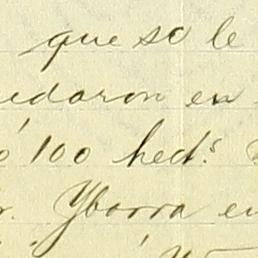 que se le
edaron en
ó 100 hect.s
r. Ybarra en